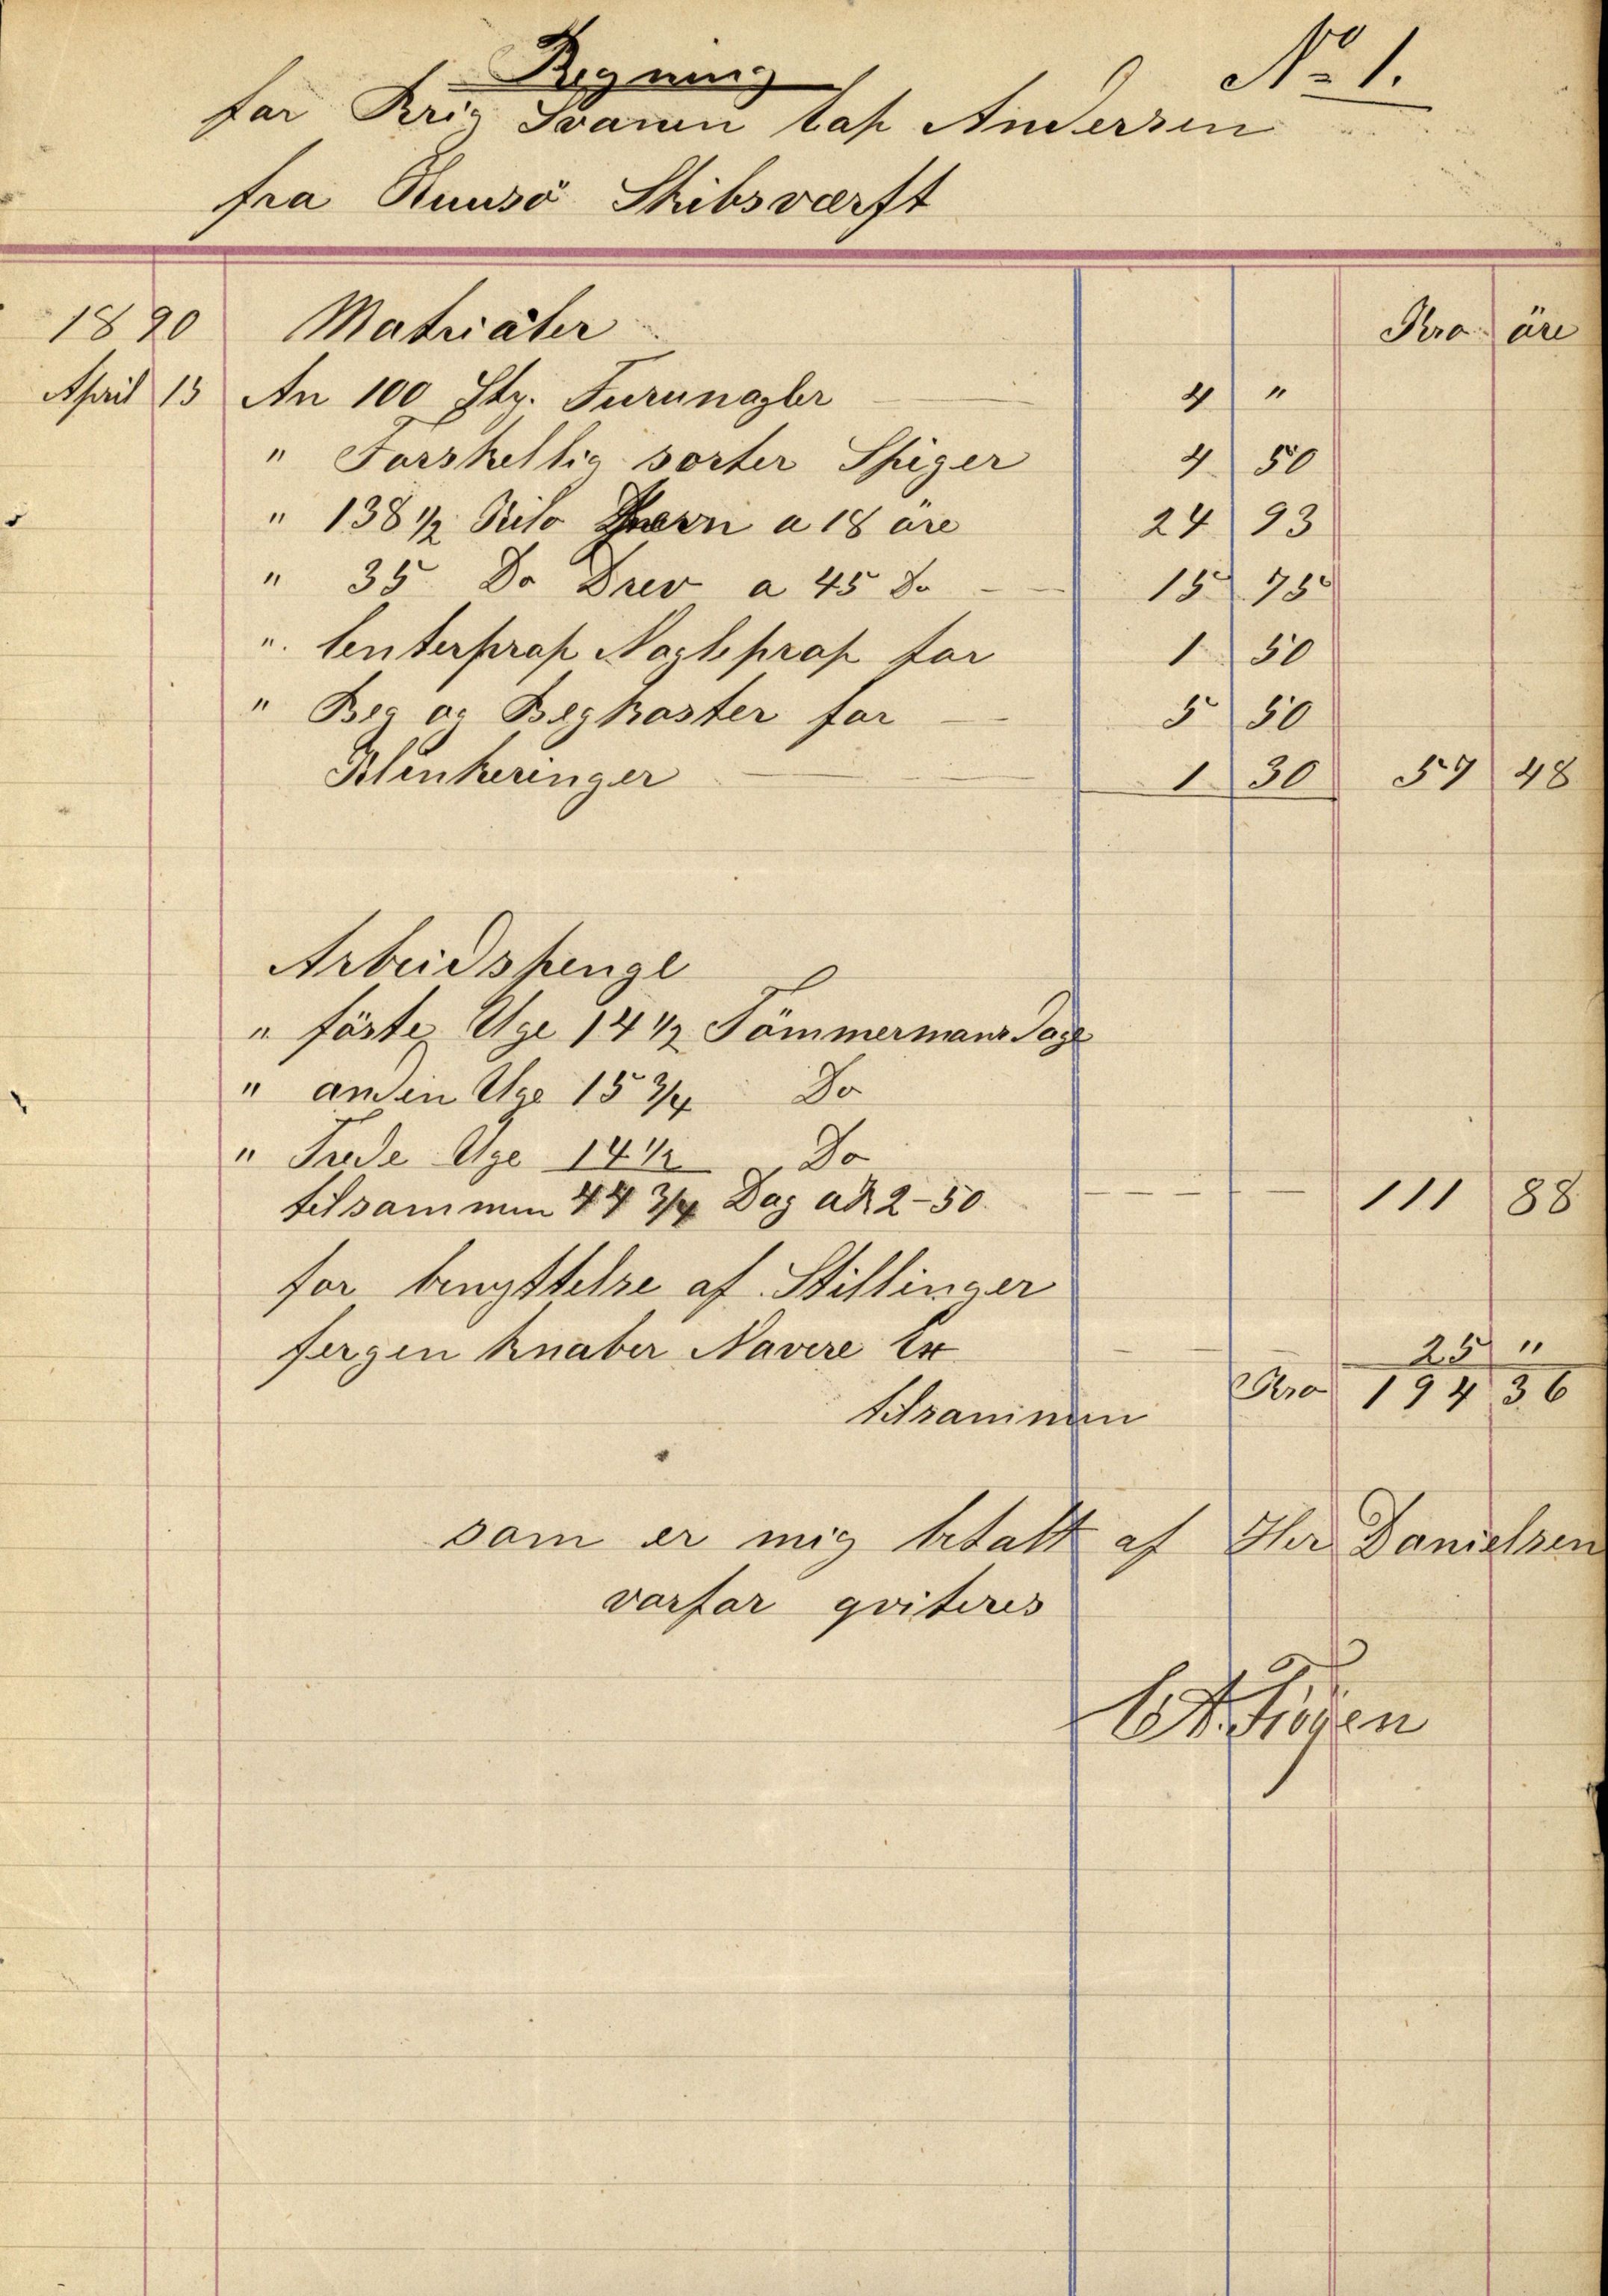 Regning
No 1.
for Brig Svanen Cap Andersen
fra Huusö Skibsværft
1890 Matriäler Kro öre
April 15 An 100 Sty. Furunagler 4 "
" Forskellig sorter Spiger 4 50
" 138 1/2 Kilo Jern a 18 öre 24 93
" 35 Do Drev a 45 Do 15 75
" Centerprop Nagleprop for 1 50
" Beg og Begkoster for 5 50
Klinkeringer 1 30 57 48
Arbeidspenge
" förste Uge 14 1/2 Tömmermans dage
" anden Uge 15 3/4 Do
" Trede Uge 14 1/2 Do
tilsammen 44 3/4 Dag a K 2-50 111 88
for benyttelse af Stillinger
fergen knaber Navere 25 "
tilsammen Kro 194 36
som er mig betalt af Her Danielsen
vorfor qviteres